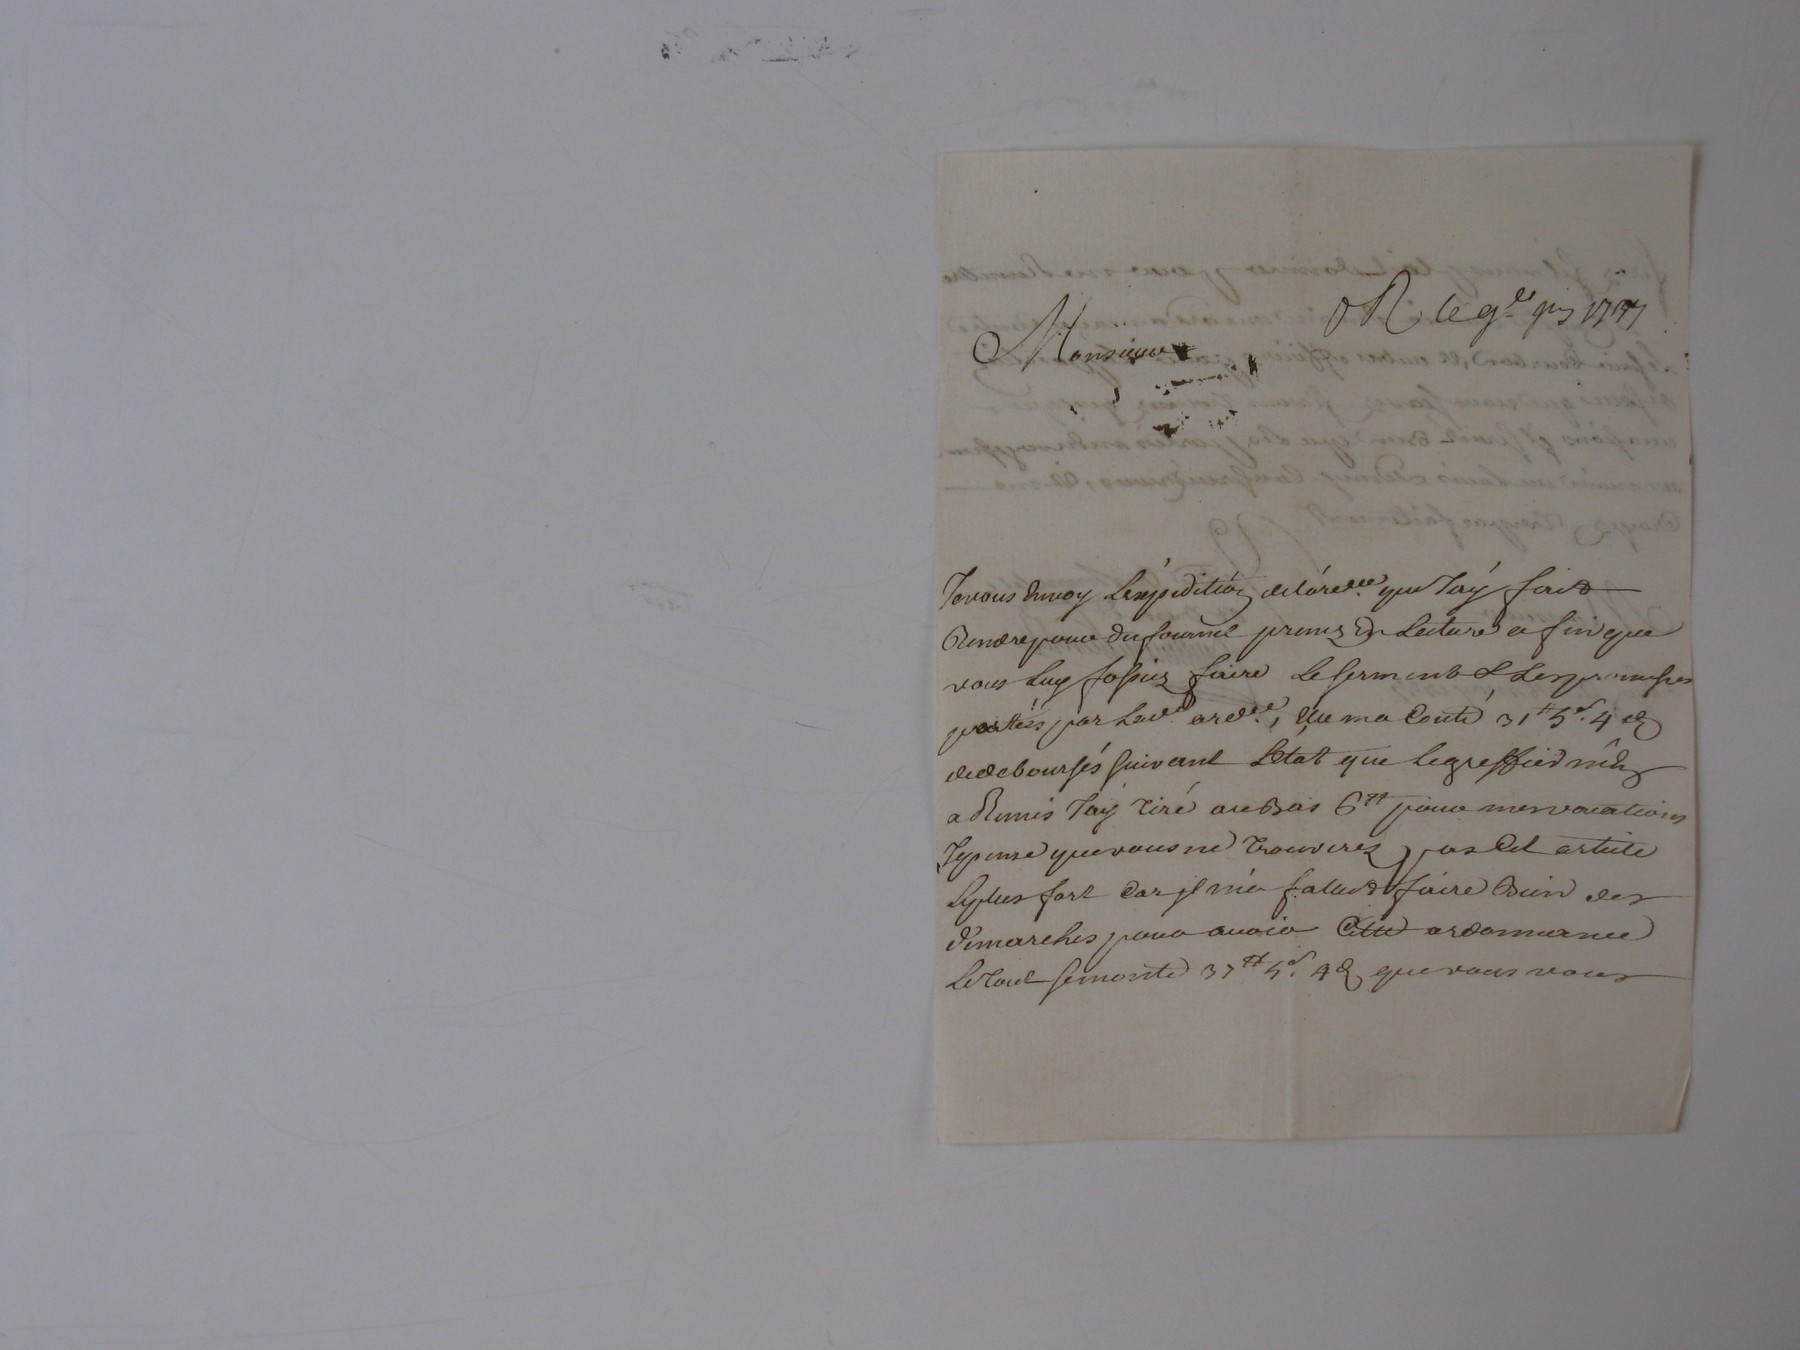 R le 9.e 1777
Monsieur
Je vous Envoy L'expédition de l'ord.ce que J'ay fait
Rendre pour du fournil prenez En Lecture a fin que
vous Luy fassiez faire Le serment & Les promesses
portées par Lad. ord.ce, Elle ma Couté 31# 5s. 4 d
de debourssés suivant L'Etat que Le greffier m'En
a Remis J'ay Tiré au Bas 6# pour mes vacations
Je pense que vous ne Trouverez pas Cet article
Le plus fort Car il m'a falut faire Bien des
demarches pour avoir Cette ordonnance
Le Tout se monte 37# 5s. 4 d que vous vous